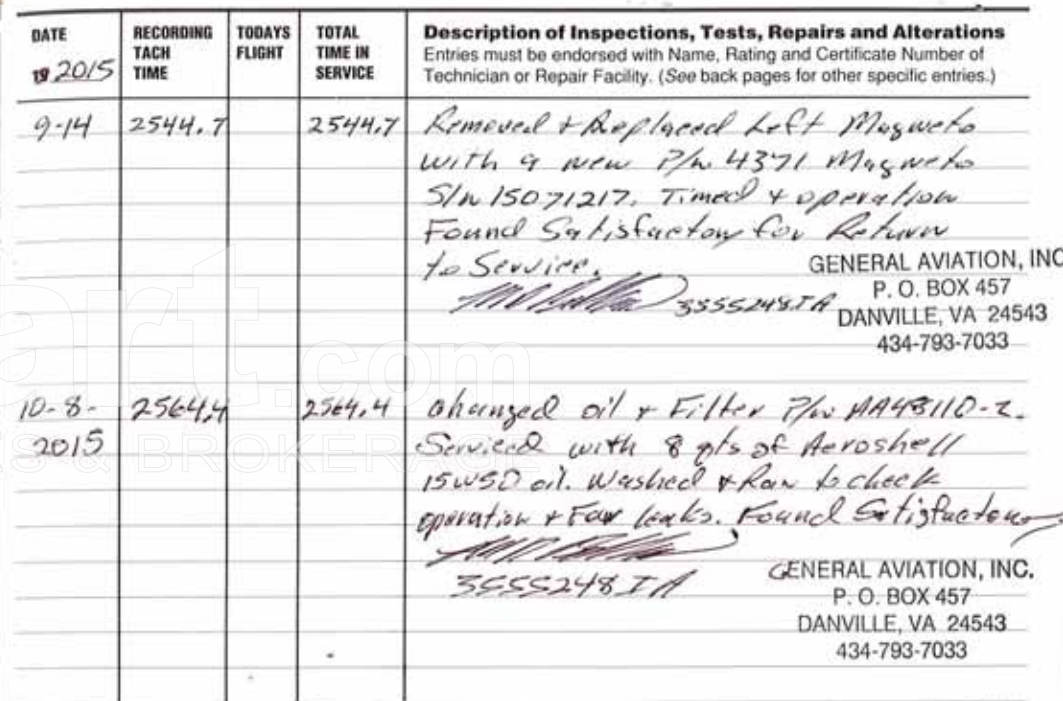 DATE RECORDING TACH TIME TODAYS FLIGHT TOTAL TIME IN SERVICE Description of Inspections, Tests, Repairs and Alterations
Entries must be endorsed with Name, Rating and Certificate Number of
Technician or Repair Facility. (See back pages for other specific entries.)
19 2015
9-14 2544.7 2544.7 Removed & Replaced Left Magneto
with a new P/n 4371 Magneto
S/n 15071217. Timed & operation
Found Satisfactory for Return
to Service.
3555248IA
GENERAL AVIATION, INC
P. O. BOX 457
DANVILLE, VA 24543
434-793-7033
10-8- 2564.4 2564.4 Changed oil & Filter P/n AA48110-2.
2015 Serviced with 8 qts of Aeroshell
15W50 oil. Washed & Ran to check
operation & For leaks. Found Satisfactory
3555248IA
GENERAL AVIATION, INC.
P. O. BOX 457
DANVILLE, VA 24543
434-793-7033
art.com
S & BROKERAGE